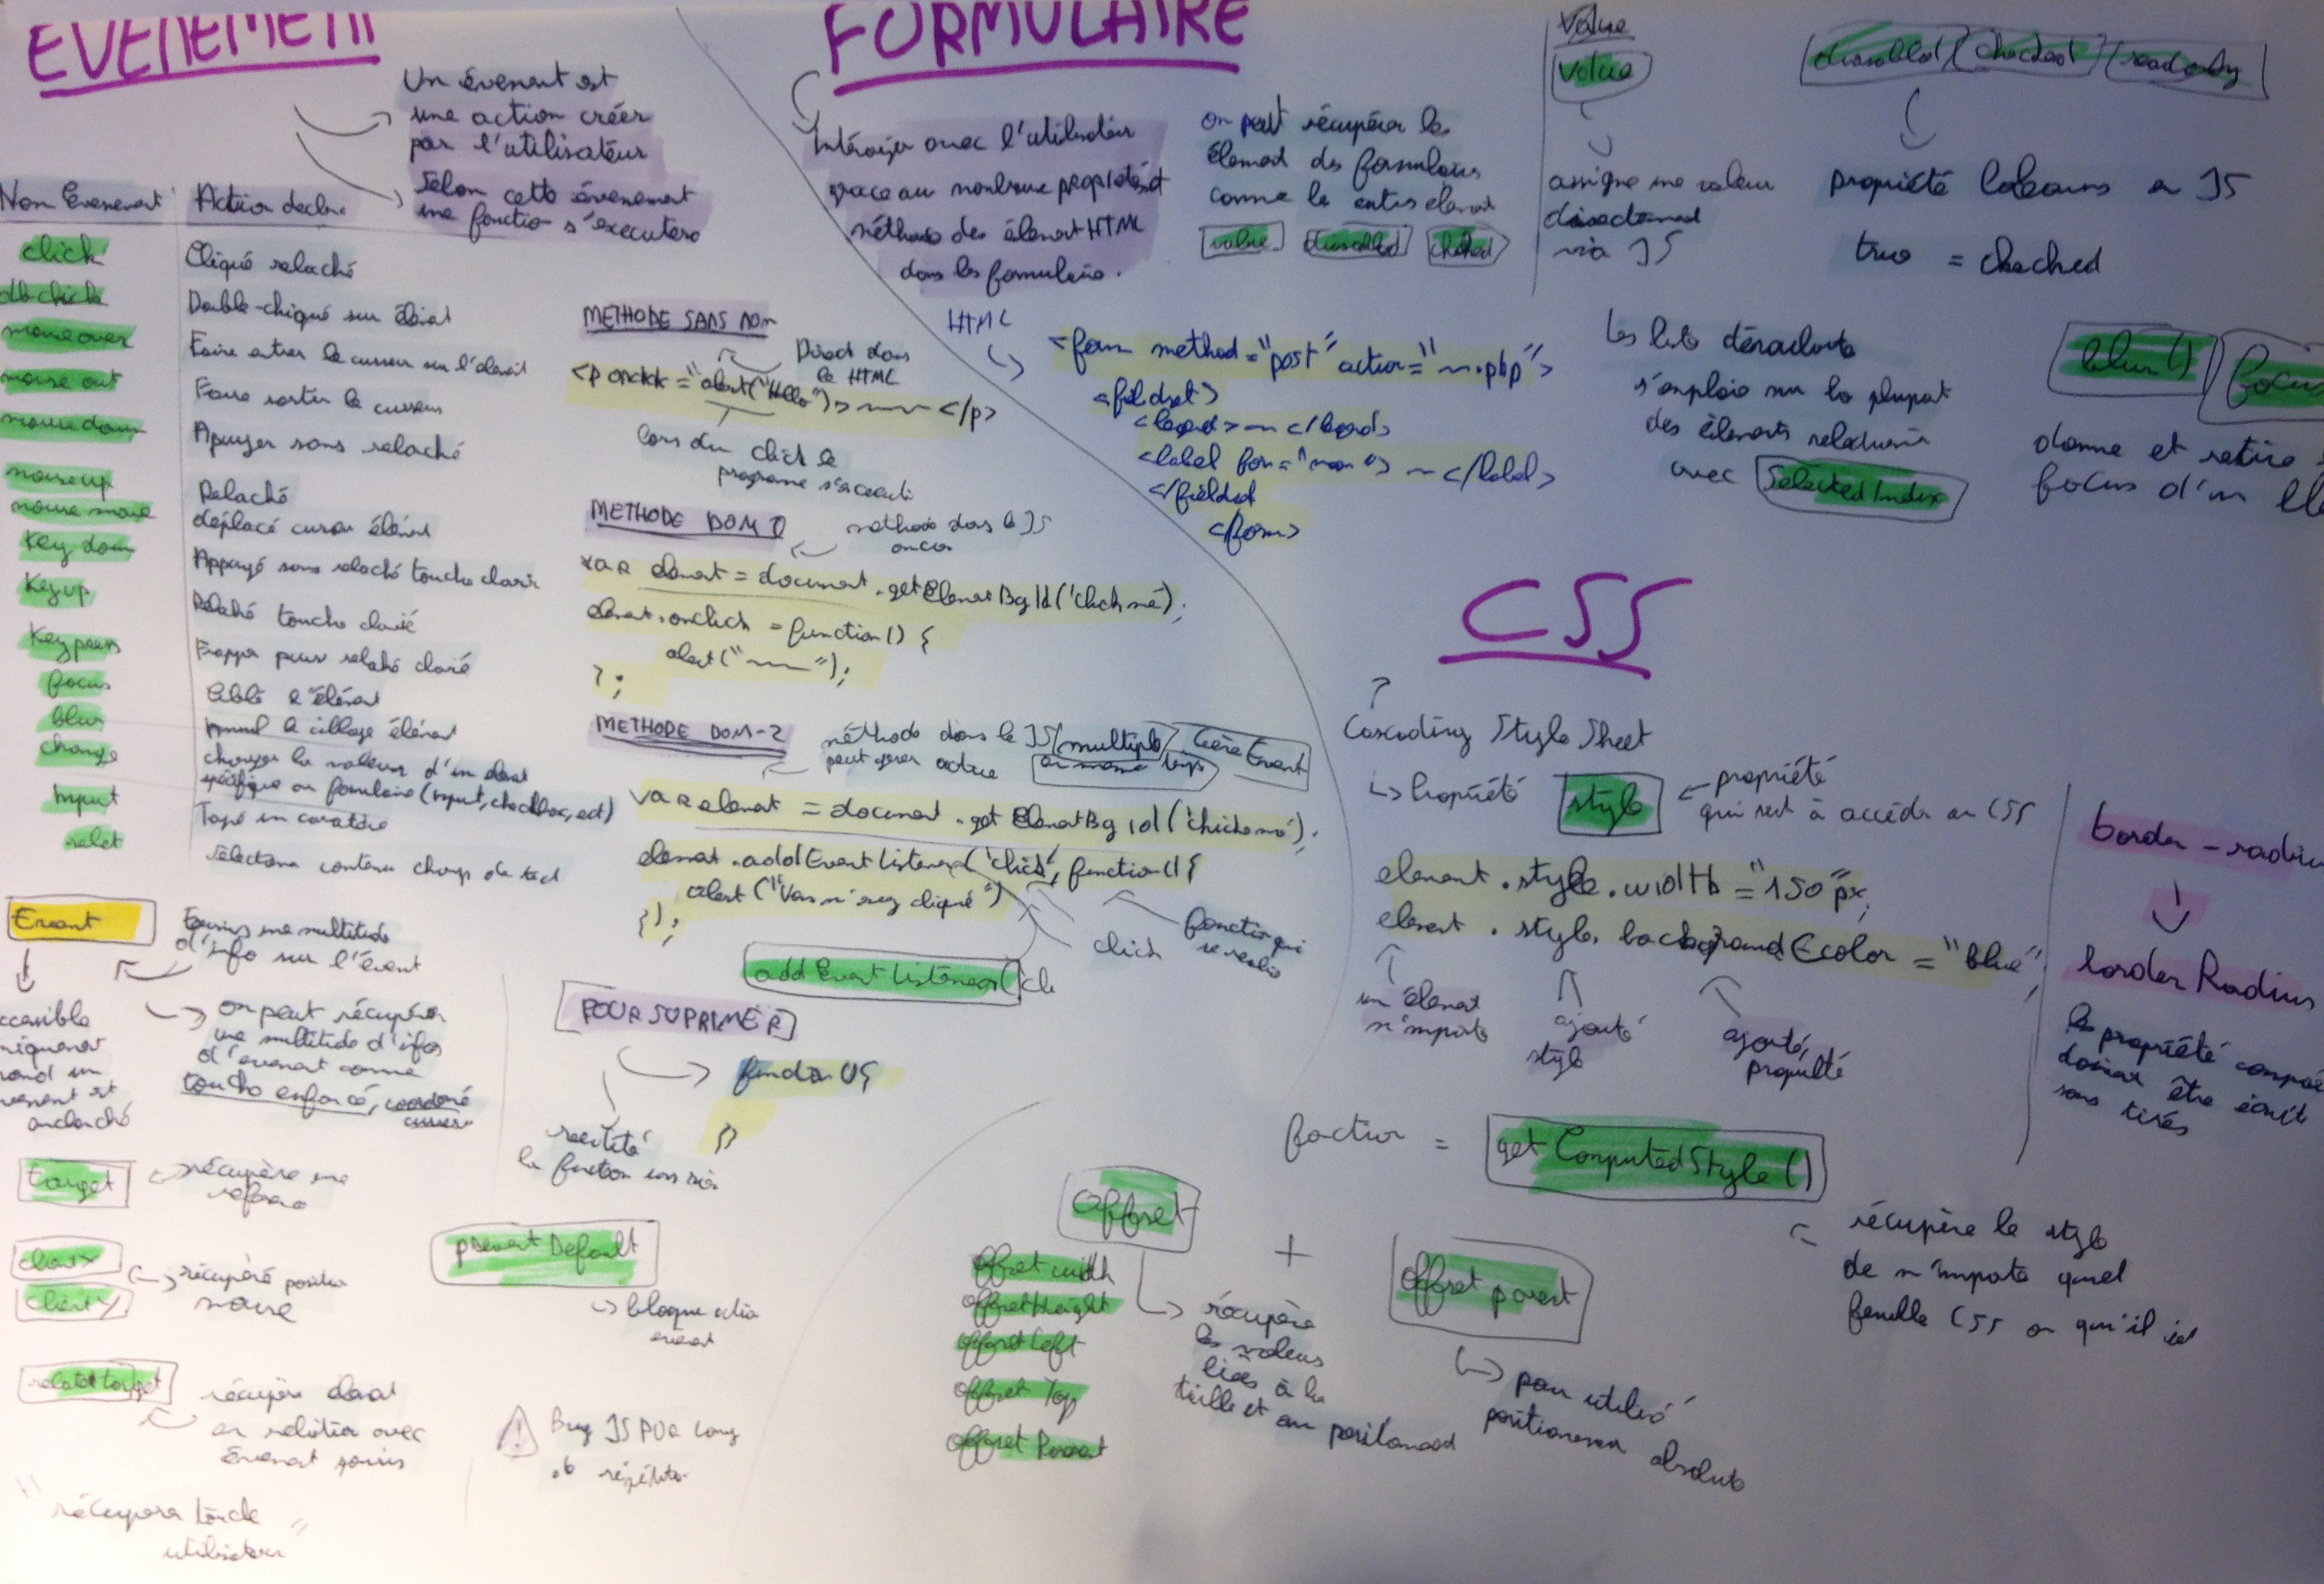 EVENEMENT
Un évenent est
une action créer
par l'utilisateur
Selon cette évenement
une fonction s'executera
Nom Evenement Action declen
click Cliqué relaché
dblclick Double-cliqué sur élémt
mouseover Faire entrer le curseur sur l'élement
mouse out Faire sortir le curseur
mousedown Apuyer sans relaché
mouseup Relaché
mouse move déplacé curseur élément
Key down Appuyé sans relaché touche clavier
Keyup Relaché touche clavié
Key press Frapper puis relaché clavié
focus Ciblé l'élément
blur Annul le ciblage élément
change changer la valeur d'un élement
spécifique au formulaire (input, checkbox, ect)
Input Tapé un caratère
select Sélectionne contenu champs de text
METHODE SANS DOM
Direct dans
le HTML
<p onclick="alert("Hello")> </p>
Lors du click le
programe s'execute
METHODE DOM 0
méthode dans le JS
VAR element = document.getElementById('clickme');
element.onclick = function() {
alert(" ");
};
METHODE DOM-2
méthode dans le JS/multiple/Gère Event
peut gérer en meme temps
VAR element = document.getElementById('clickeme');
element.addEventListener('click', function(){
alert("Vous m'avez cliqué")
});
click
fonction qui
se realise
addEventListener('cli
Event
Fournis une multitude
d'info sur l'évent
ccessible
niquement
uand un
vement est
enclenché
on peut récupérer
une multitude d'infos
d'evenement comme
touche enfoncé, coordoné
curseur
POUR SUPRIMER
function(){
})
réécrire
la fonction
target
récupère une
clientX
clientY
récupéré position
souris
preventDefault
bloque action
event
relatedtarget
récupère élement
en relation avec
évenement souris
Bug JS
"récupera touche
utilisateur"
FORMULAIRE
Intéragir avec l'utilisateur
grace au nombreuse propriétés et
méthodes des élement HTML
dans les formulaire.
on peut récupérer les
élement des formulaires
comme les entres element
value disabled checked
Value
Value
assigne une valeur
directement
via JS
disabled/checked/readonly
propriété boleans en JS
true = checked
HTML
<form method="post" action=" .php">
<fieldset>
<legend> </legend>
<label for="nom"> </label>
</fieldset
</form>
Les liste déroulante
s'emploie sur la plupart
des éléments
avec SelectedIndex
blur() focus
donne et retire
focus d'un éle
CSS
Cascading Style Sheet
Propriété style
propriété
qui sert à accéder au CSS
element.style.width="150"px;
element.style.backgroundEcolor="blue";
un élement
n'importe
ajouté
style
ajouté,
propriété
border-radius
borderRadius
les propriété composé
doivent être écrit
sans tirés
fonction = getComputedStyle()
récupère le style
de n'importe quel
feuille CSS ou qu'il est
Offset
+
Offset parent
Offset width
OffsetHeight
OffsetLeft
Offset Top
Offset Parent
récupère
les valeurs
liés à la
taille et au positionement
pour utilisé
positionement absolute